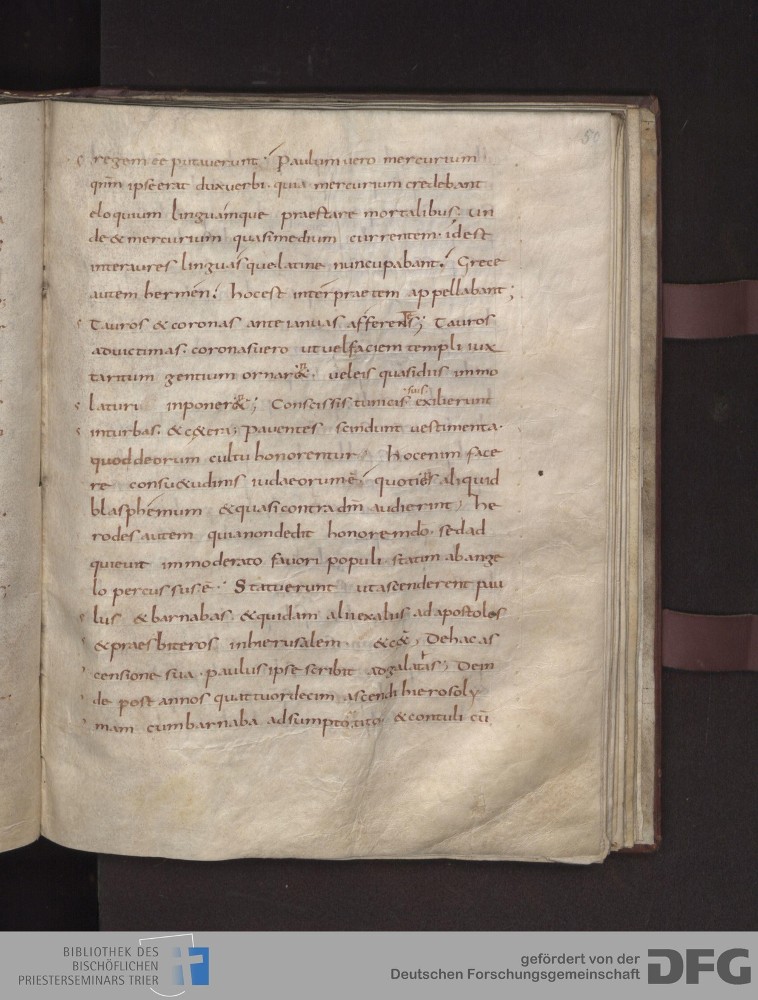 50
regem ēē putaverunt; Paulum vero mercurium
qm̄ ipse erat dux verbi. quia mercurium credebant
eloquium linguamque praestare mortalibus. un
de & mercurium quasi medium currentem. id est
inter aures linguasque latine nuncupabant; Grece
autem hermen; hoc est interpraetem appellabant;
Tauros & coronas ante ianuas afferens; Tauros
ad victimas. coronas vero ut vel faciem templi iux
ta ritum gentium ornar&. vel eis quasi diis immo
laturi inponer&; Conscissis tunicis suis exilierunt
in turbas. & c&era; paventes scindunt vestimenta.
quod deorum cultu honorentur; hoc enim face
re consu&udinis iudaeorum ē; quoties aliquid
blasphemum & quasi contra dm̄ audierint; he
rodes autem quia non dedit honorem dō. sed ad
quievit immoderato favori populi. statim ab ange
lo percussus ē. Statuerunt ut ascenderent pau
lus & barnabas. & quidam alii ex aliis ad apostolos
& praesbiteros in hierusalem. &c&; De hac as
censione sua. paulus ipse scribit ad galatis; Dein
de post annos quattuordecim ascendi hierosoly
mam cum barnaba adsumpto. tito. & contuli cū
BIBLIOTHEK DES
BISCHÖFLICHEN
PRIESTERSEMINARS TRIER
gefördert von der
Deutschen Forschungsgemeinschaft
DFG